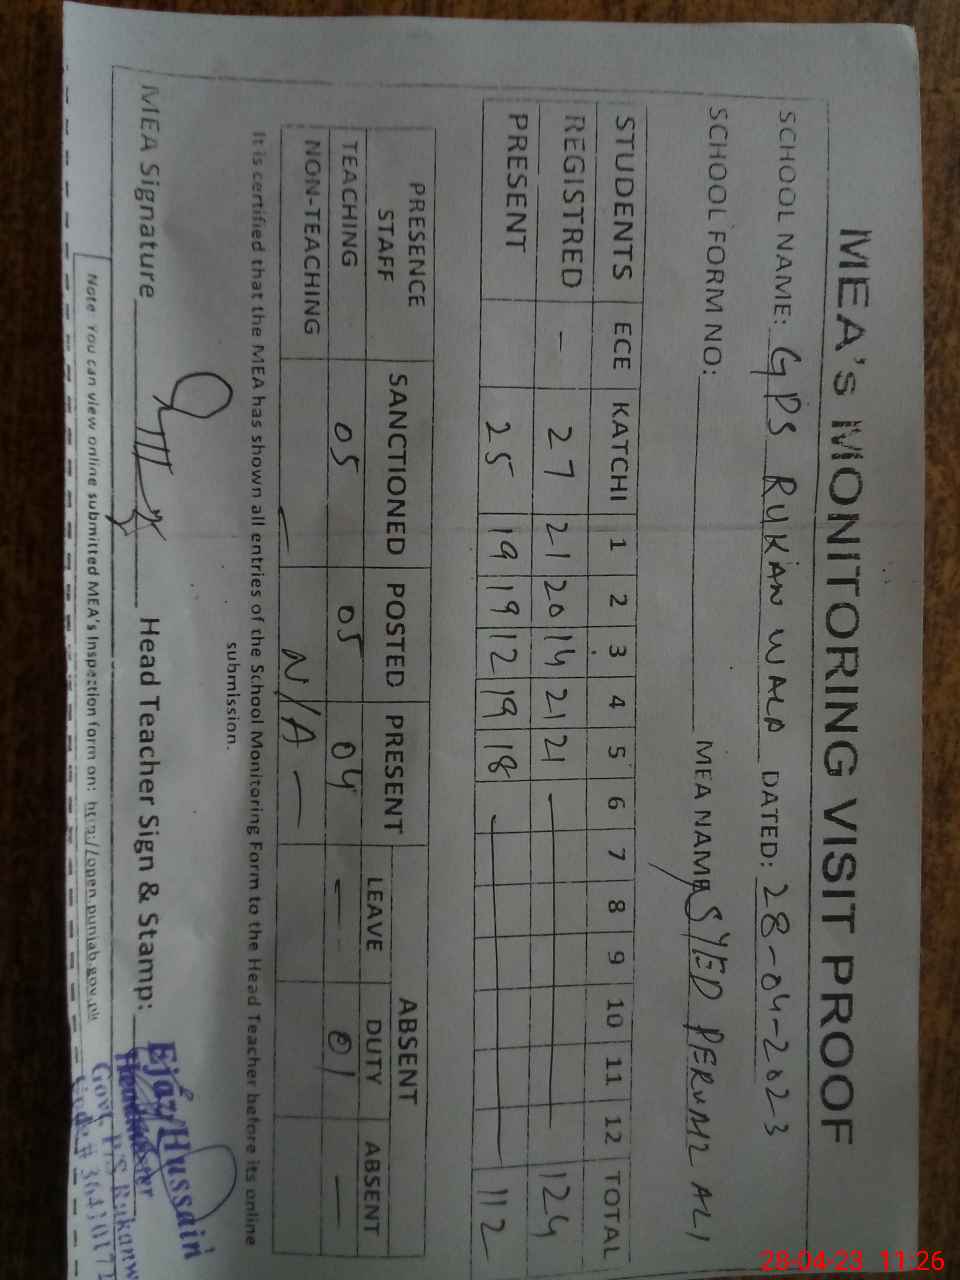 MEA's MONITORING VISIT PROOF
SCHOOL NAME: GPS RUKAN WALA DATED: 28-04-2023
SCHOOL FORM NO: MEA NAME SYED ALI
STUDENTS ECE KATCHI 1 2 3 4 5 6 7 8 9 10 11 12 TOTAL
REGISTRED - 27 21 20 14 21 21 - 124
PRESENT 25 19 19 12 19 18 - 112
PRESENCE STAFF SANCTIONED POSTED PRESENT ABSENT
LEAVE DUTY ABSENT
TEACHING 05 05 04 - 01 -
NON-TEACHING - N/A -
It is certified that the MEA has shown all entries of the School Monitoring Form to the Head Teacher before its online
submission.
MEA Signature Head Teacher Sign & Stamp:
Ejaz Hussain
Headmaster
Govt. P/S Rukanw
Note: You can view online submitted MEA's Inspection form on: http://open.punjab.gov.pk
28-04-23 11:26